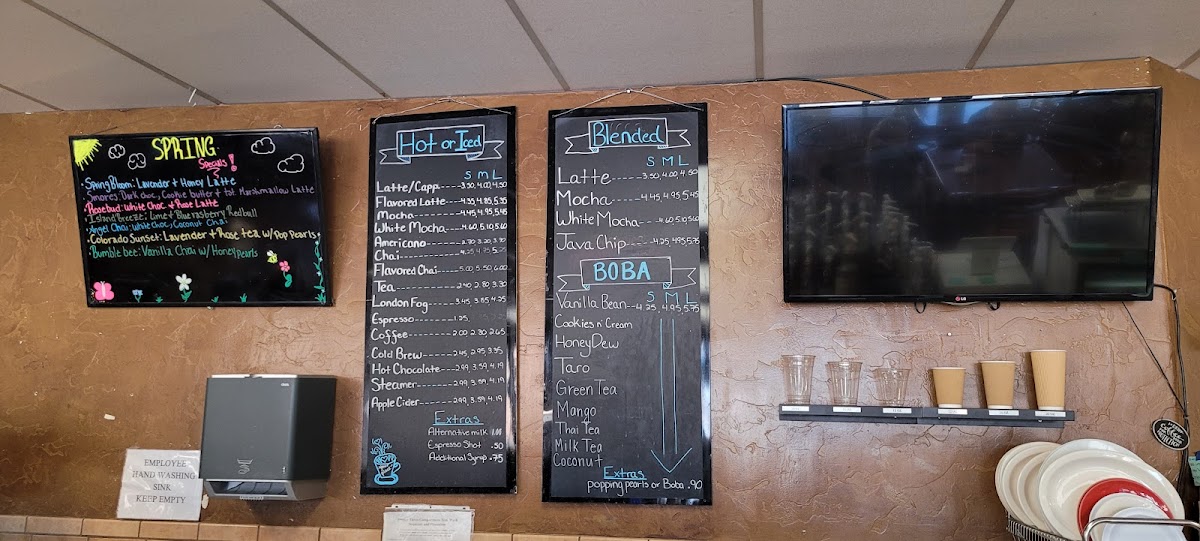 SPRING
Specials!
• Spring Bloom: Lavender + Honey Latte
• Smores: Dark choc, Cookie butter + tst. Marshmallow Latte
• Rosebud: White choc + Rose Latte
• Island Breeze: Lime + Blue rasberry Redbull
• Angel Chai: White choc, Coconut Chai
• Colorado Sunset: Lavender + Rose tea w/ Pop Pearls
• Bumble bee: Vanilla Chai w/ Honey pearls
Hot or Iced
S M L
Latte/Capp 3.50, 4.00, 4.50
Flavored Latte 4.35, 4.85, 5.35
Mocha 4.45, 4.95, 5.45
White Mocha 4.60, 5.10, 5.60
Americano 2.70, 3.20, 3.70
Chai 4.25
Flavored Chai 5.00, 5.50, 6.00
Tea 2.40, 2.80, 3.30
London Fog 3.45, 3.85, 4.25
Espresso 1.25
Coffee 2.00, 2.30, 2.65
Cold Brew 2.45, 2.95, 3.35
Hot Chocolate 2.99, 3.59, 4.19
Steamer 2.99, 3.59, 4.19
Apple Cider 2.99, 3.59, 4.19
Extras
Alternative milk 1.00
Espresso Shot .50
Additional Syrup .75
Blended
S M L
Latte 3.50, 4.00, 4.50
Mocha 4.45, 4.95, 5.45
White Mocha 4.60, 5.10, 5.60
Java Chip 4.25, 4.95, 5.75
BOBA
S M L
Vanilla Bean 4.25, 4.95, 5.75
Cookies n' Cream
HoneyDew
Taro
Green Tea
Mango
Thai Tea
Milk Tea
Coconut
Extras
popping pearls or Boba .90
LG
EMPLOYEE
HAND WASHING
SINK
KEEP EMPTY